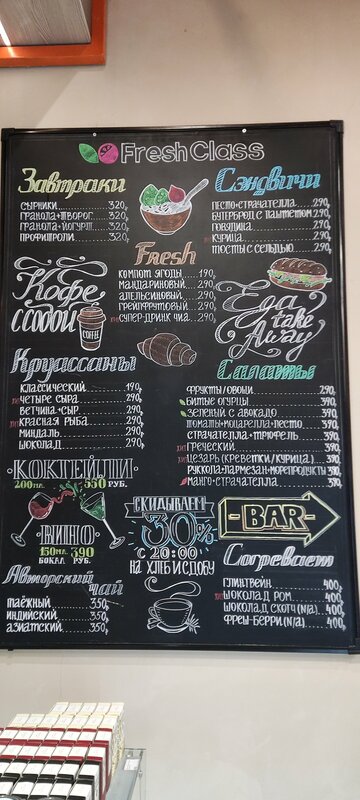 Fresh Class
Завтраки
сырники 320
гранола+творог 320
гранола+йогурт 320
профитроли 320
Сэндвичи
песто-страчателла 290
бутерброд с паштетом 290
говядина 290
курица 290
тосты с сельдью 290
Fresh
компот ягоды 190
мандариновый 290
апельсиновый 290
грейпфрутовый 290
супер-дринк чиа 290
Кофе
с собой
COFFE
Еда
take
Away
Круассаны
классический 190
четыре сыра 290
ветчина+сыр 290
красная рыба 290
миндаль 290
шоколад 290
Салаты
фрукты/овощи 290
битые огурцы 390
зеленый с авокадо 390
томаты+моцарелла+песто 390
страчателла+трюфель 390
греческий 390
цезарь (креветки/курица) 390
руккола+пармезан+морепродукты 390
манго+страчателла
КОКТЕЙЛИ
200мл. 550 руб.
ВИНО
150мл. 390
бокал руб.
СКИДЫВАЕМ
30%
с 20:00
на хлеб и сдобу
BAR
Согревает
глинтвейн 400
шоколад ром 400
шоколад скотч (n/a) 400
фреш-берри (n/a) 400
Авторский
чай
таёжный 350
индийский 350
азиатский 350